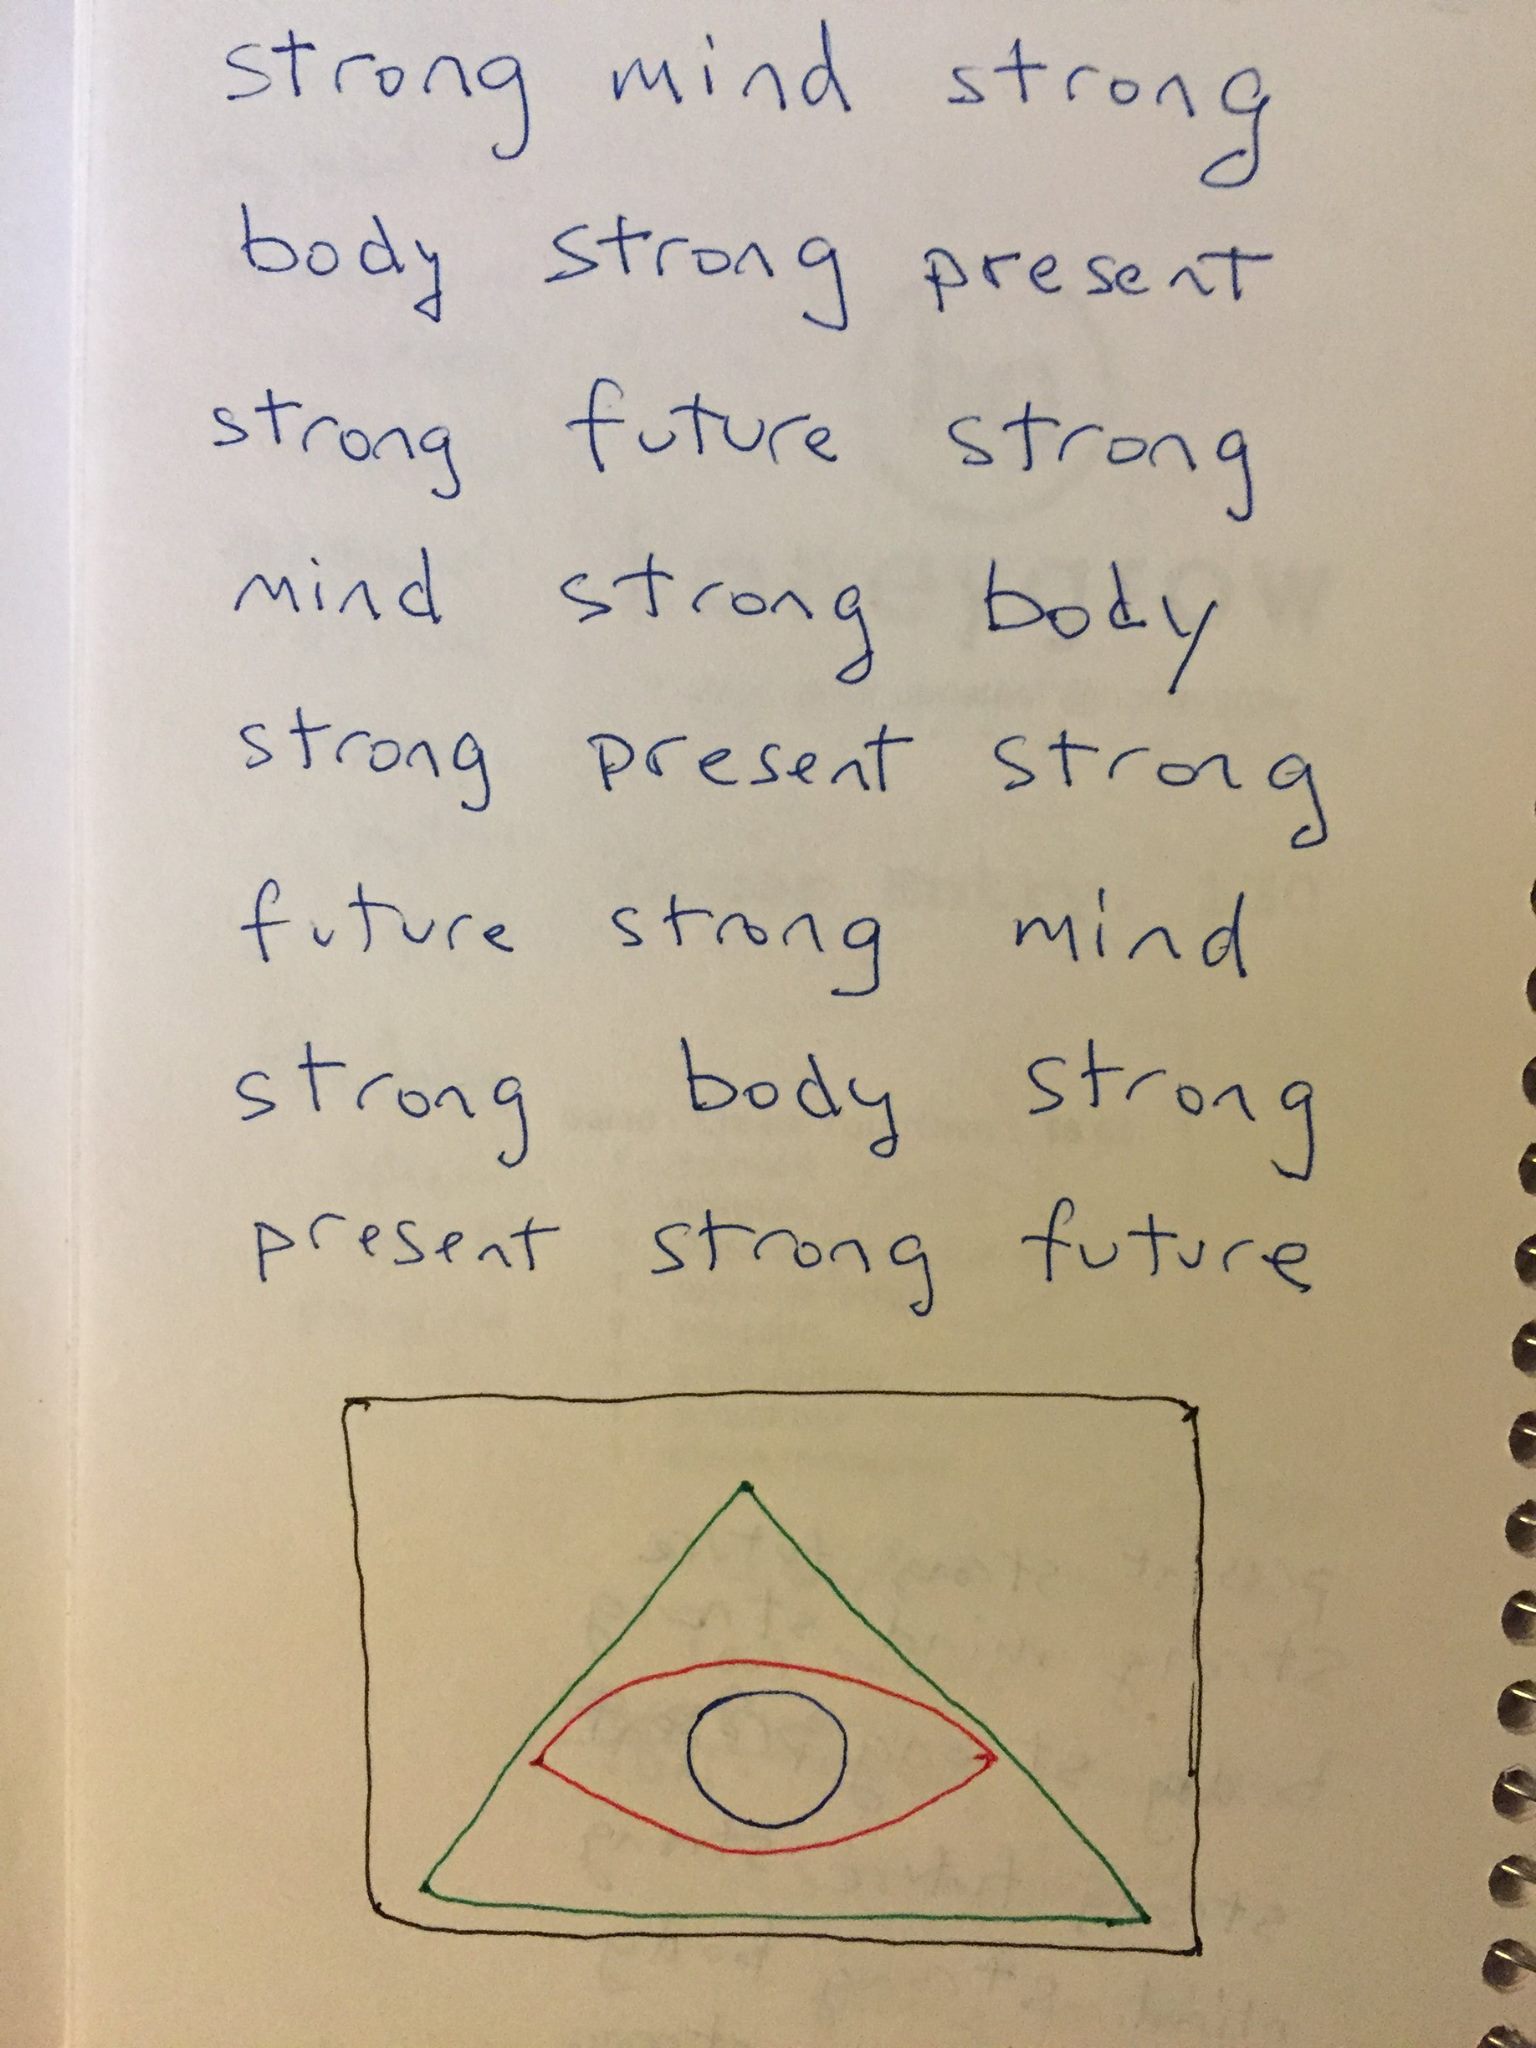 strong mind strong
body strong present
strong future strong
mind strong body
strong present strong
future strong mind
strong body strong
present strong future